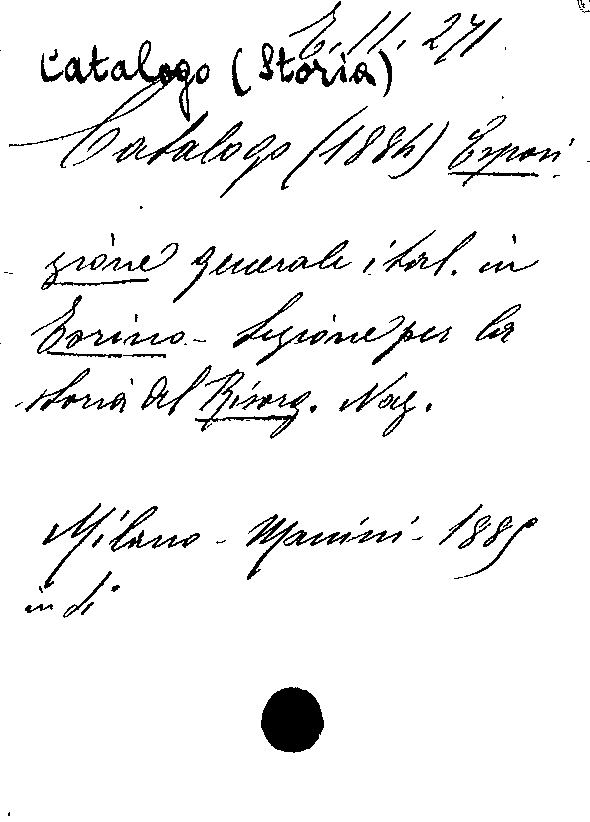 E. 11. 271
Catalogo (Storia)
Catalogo (1884) Esposi
zione generale ital. in
Torino - Sezione per la
storia del Risorg. Naz.
Milano - Manini - 1885
in